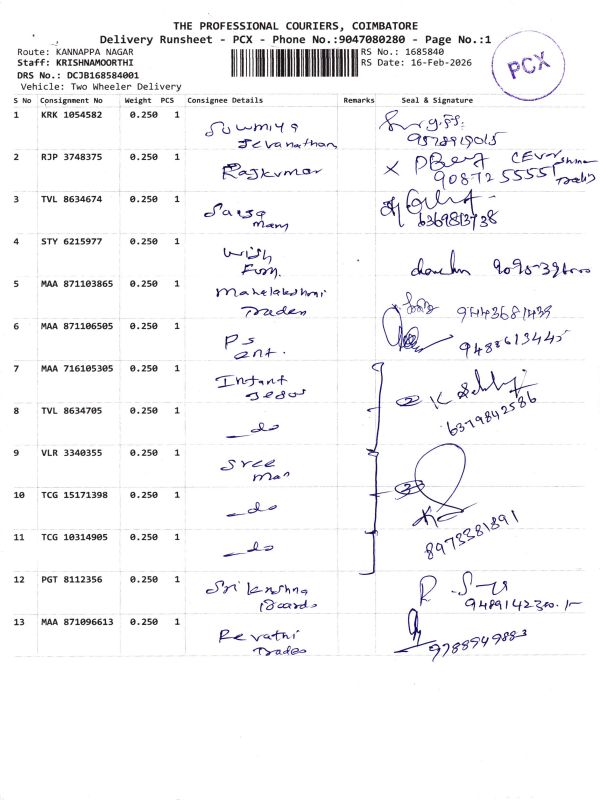 THE PROFESSIONAL COURIERS, COIMBATORE
Delivery Runsheet - PCX - Phone No.:9047080280 - Page No.:1
Route: KANNAPPA NAGAR
RS No.: 1685840
Staff: KRISHNAMOORTHI
RS Date: 16-Feb-2026
DRS No.: DCJB168584001
Vehicle: Two Wheeler Delivery
PCX
S No Consignment No Weight PCS Consignee Details Remarks Seal & Signature
1 KRK 1054582 0.250 1 Sowmiya
Jevanathan
9578919015
2 RJP 3748375 0.250 1 Rajkumar
90872 55551
3 TVL 8634674 0.250 1
6369813738
4 STY 6215977 0.250 1 Wish
Fum.
5 MAA 871103865 0.250 1 Mahalakshmi
Traders
9443681439
6 MAA 871106505 0.250 1 PS
ent.
9488613445
7 MAA 716105305 0.250 1 Infant
Jesus
2
8 TVL 8634705 0.250 1 do
6379842586
9 VLR 3340355 0.250 1 Sree
10 TCG 15171398 0.250 1 do
3
11 TCG 10314905 0.250 1 do
8973381891
12 PGT 8112356 0.250 1 Sri Krishna
9489142300
13 MAA 871096613 0.250 1 Revathi
Trades
9788949883